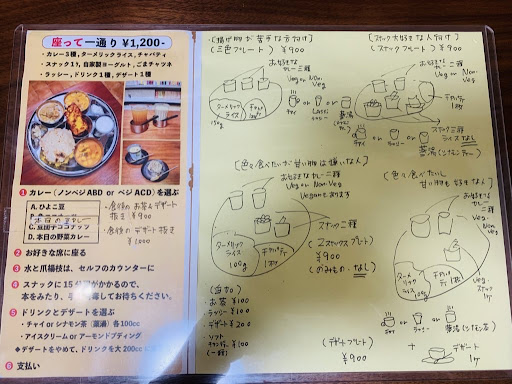 座って一通り ¥1,200-
・カレー3種, ターメリックライス, チャパティ
・スナック1ケ, 自家製ヨーグルト, ごまチャツネ
・ラッシー, ドリンク1種, デザート1種
1 カレー（ノンベジABD or ベジACD）を選ぶ
A.ひよこ豆
本日の豆カレー
C.豆団子ココナッツ
D.本日の野菜カレー
・食後のお茶&デザート抜き ¥900
・食後のデザート抜き ¥1,000
2 お好きな席に座る
3 水と爪楊枝は、セルフのカウンターに
4 スナックに15分
がかかるので、
本をみたり、
てお待ちください。
5 ドリンクとデザートを選ぶ
・チャイ or シナモン茶（薬湯）各100cc
・アイスクリーム or アーモンドプディング
◆デザートをやめて、ドリンクを大200cc
6 支払い
[揚げ物が苦手な方向け]
(三色プレート) ¥900
お好きな
カレー三種
Veg or Non-Veg
ターメリックライス
150g
チャパティ
1枚
チャイ or Lassi or 薬湯
[スナック大好きな人向け]
(スナックプレート) ¥900
お好きな
カレー二種
Veg or Non-Veg
チャパティ
1枚
スナック三種
ライスなし
チャイ or ラッシー or 薬湯(シナモンティー)
[色々食べたいが甘い物は嫌いな人]
お好きなカレー二種
Veg or Non-Veg
Veganもあります
ターメリックライス
100g
チャパティ
1枚
スナック二種
(2スナックスプレート)
¥900
(のみもの、なし)
[色々食べたいし
甘い物も好きな人]
お好きな
カレー二種
Veg or Non-Veg
ターメリックライス
100g
チャパティ1枚
スナック
1ケ
チャイ or ラッシー or 薬湯(シナモン茶)
+ デザート
1ケ
(デザートプレート)
¥900
・お茶 ¥100
・ラッシー ¥100
・デザート ¥200
・ソフト
¥100